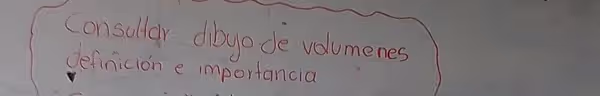 Consultar dibujo de volumenes
definición e importancia